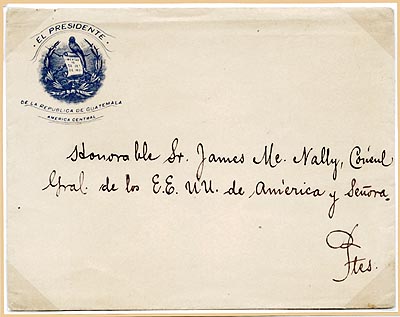 EL PRESIDENTE
DE LA REPUBLICA DE GUATEMALA
AMERICA CENTRAL
Honorable Sr. James Mc. Nally, Cónsul
Gral. de los E.E. U.U. de América y Señora.
Ptes.